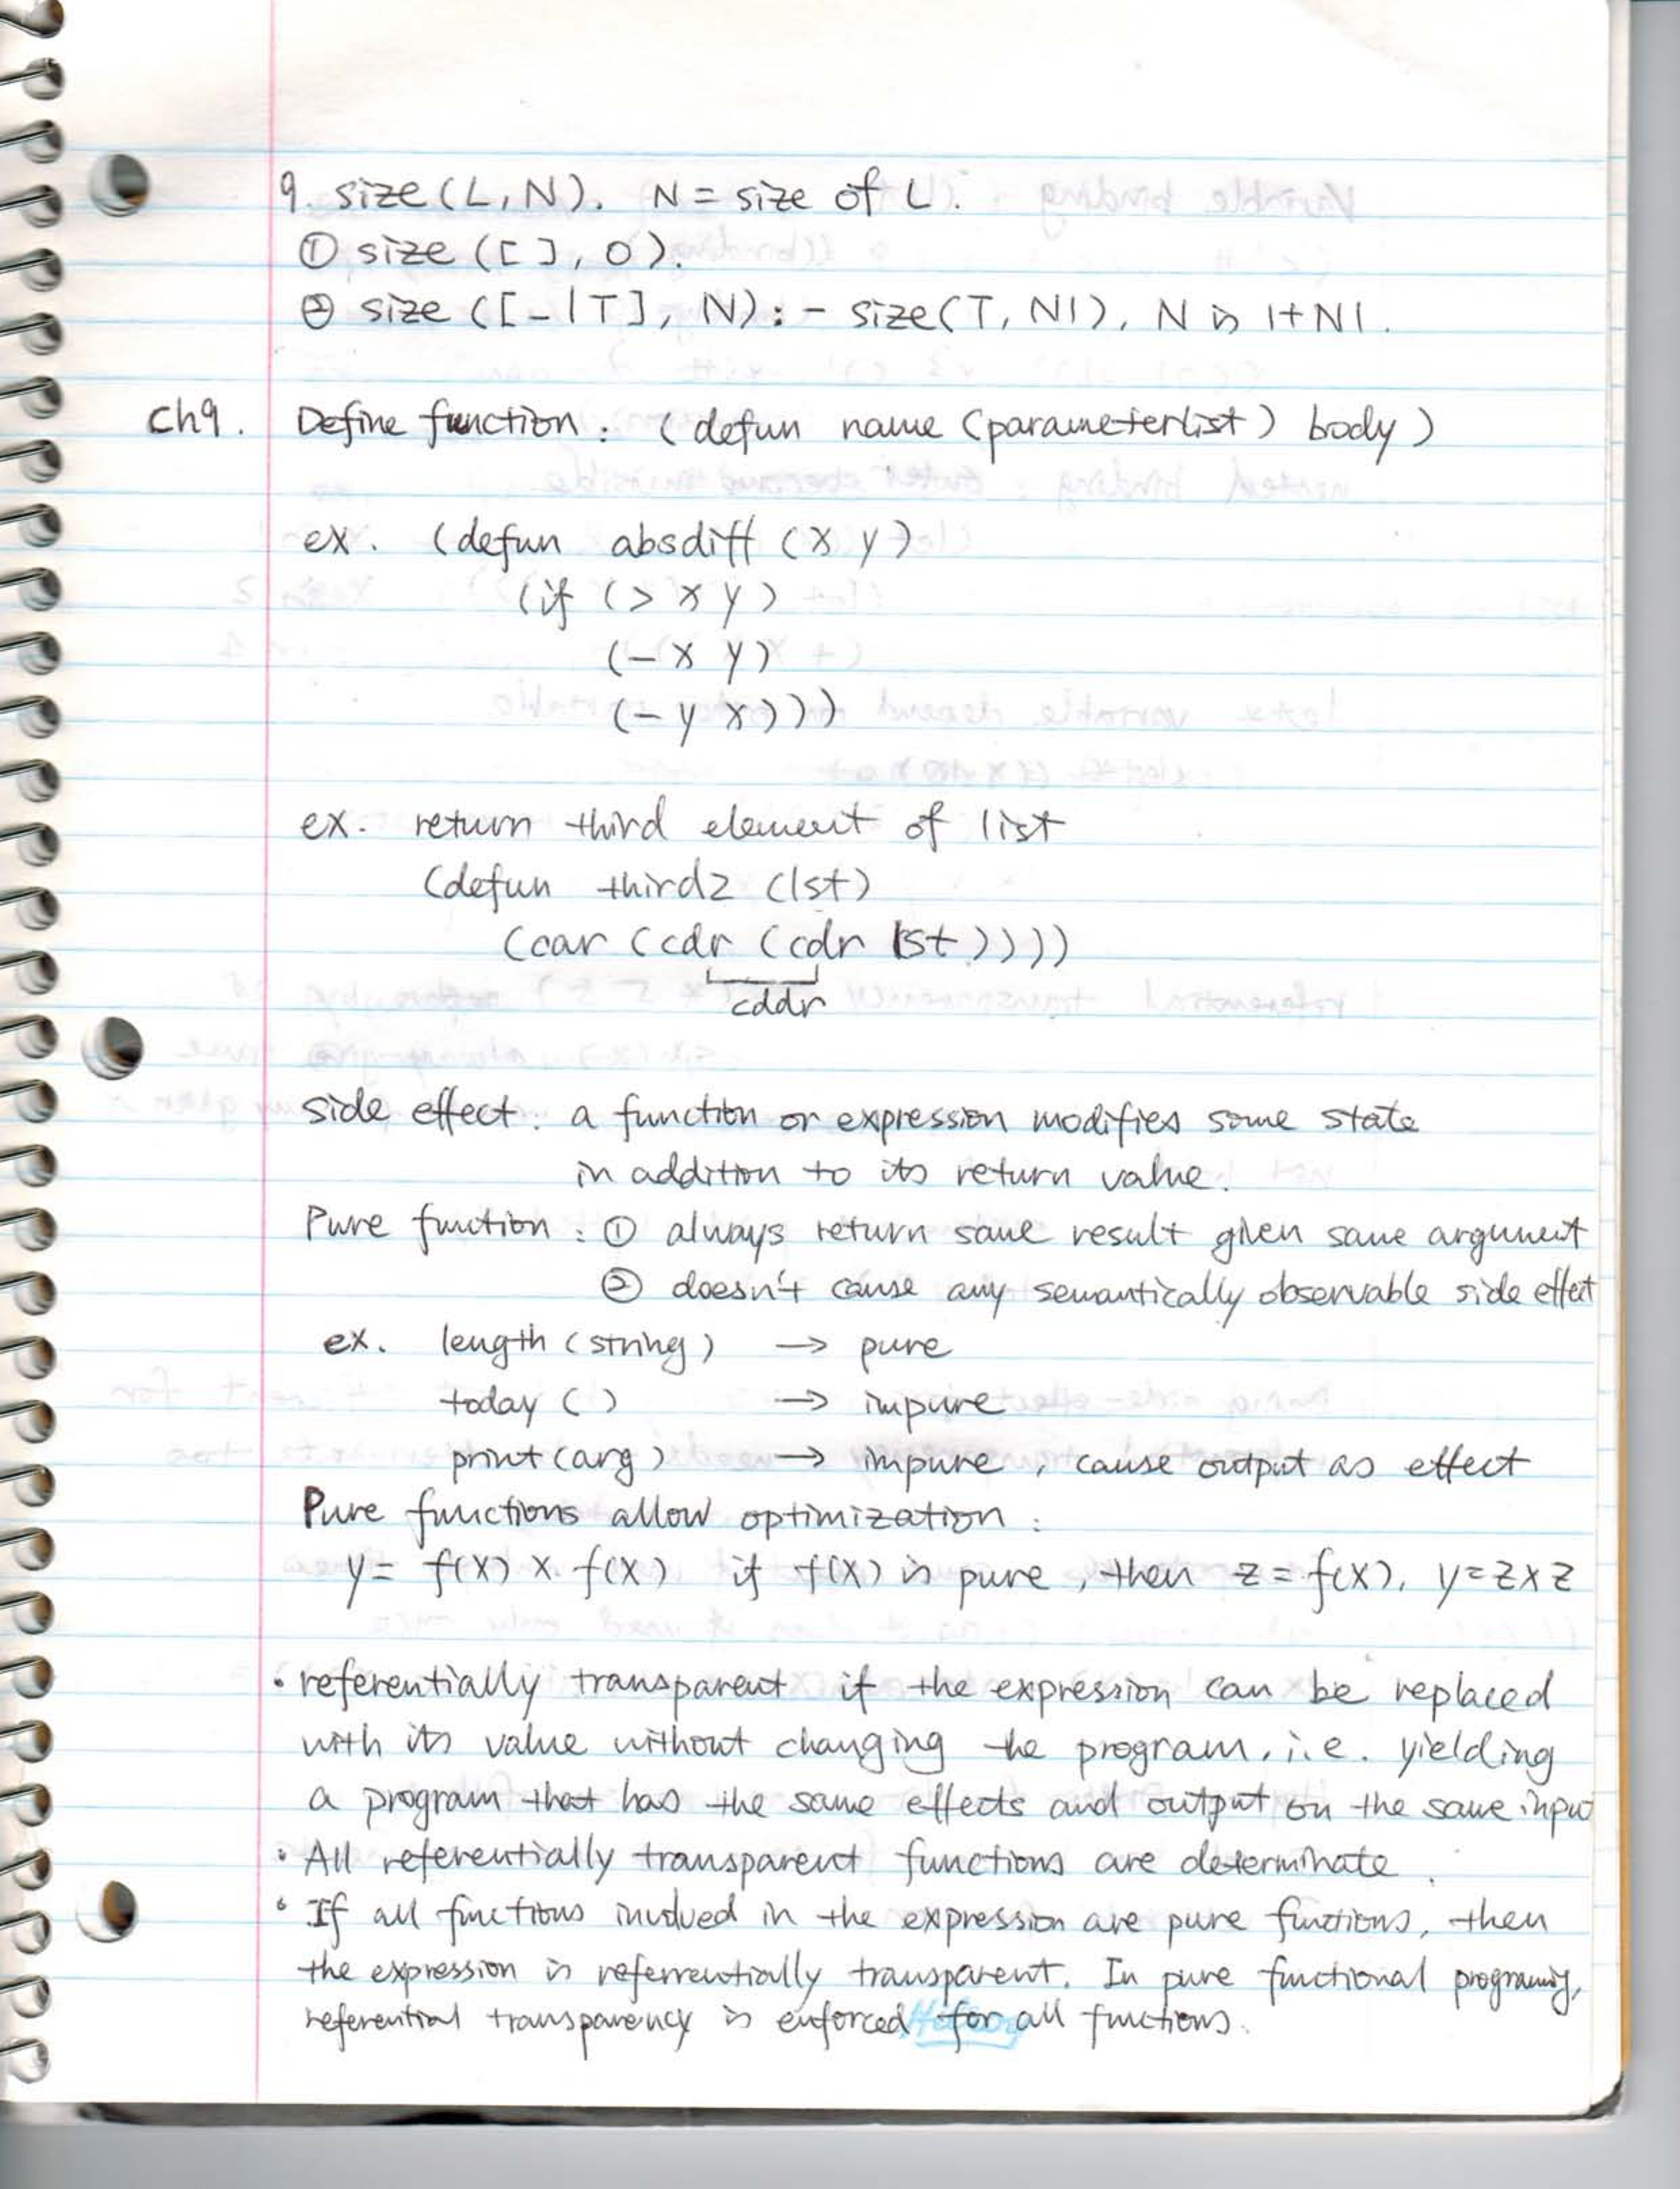 9. size(L, N). N = size of L.
① size ([ ], 0).
② size ([_|T], N) :- size(T, N1), N is 1+N1.
Ch9. Define function : (defun name (parameterlist) body)
ex. (defun absdiff (x y)
(if (> x y)
(- x y)
(- y x)))
ex. return third element of list
(defun third2 (lst)
(car (cdr (cdr lst))))
cddr
side effect : a function or expression modifies some state
in addition to its return value.
Pure function : ① always return same result given same argument
② doesn't cause any semantically observable side effect
ex. length (string) → pure
today ( ) → impure
print (arg) → impure, cause output as effect
Pure functions allow optimization :
y = f(x) x f(x) if f(x) is pure, then z = f(x), y = z x z
• referentially transparent if the expression can be replaced
with its value without changing the program, i.e. yielding
a program that has the same effects and output on the same input
• All referentially transparent functions are determinate.
• If all functions involved in the expression are pure functions, then
the expression is referrentially transparent. In pure functional programing,
referential transparency is enforced for all functions.